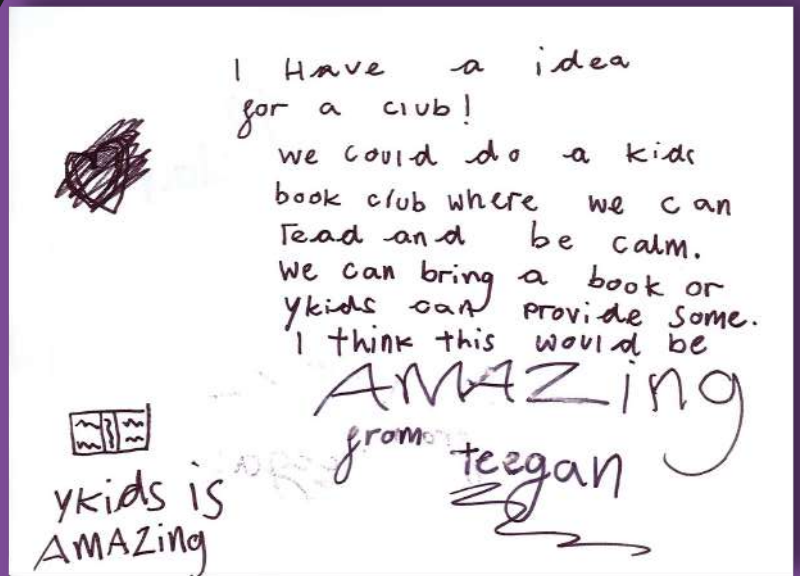 I Have a idea
for a club!
we could do a kids
book club where we can
read and be calm.
We can bring a book or
ykids can provide some.
I think this would be
AMAZing
from
teegan
ykids is
AMAZing